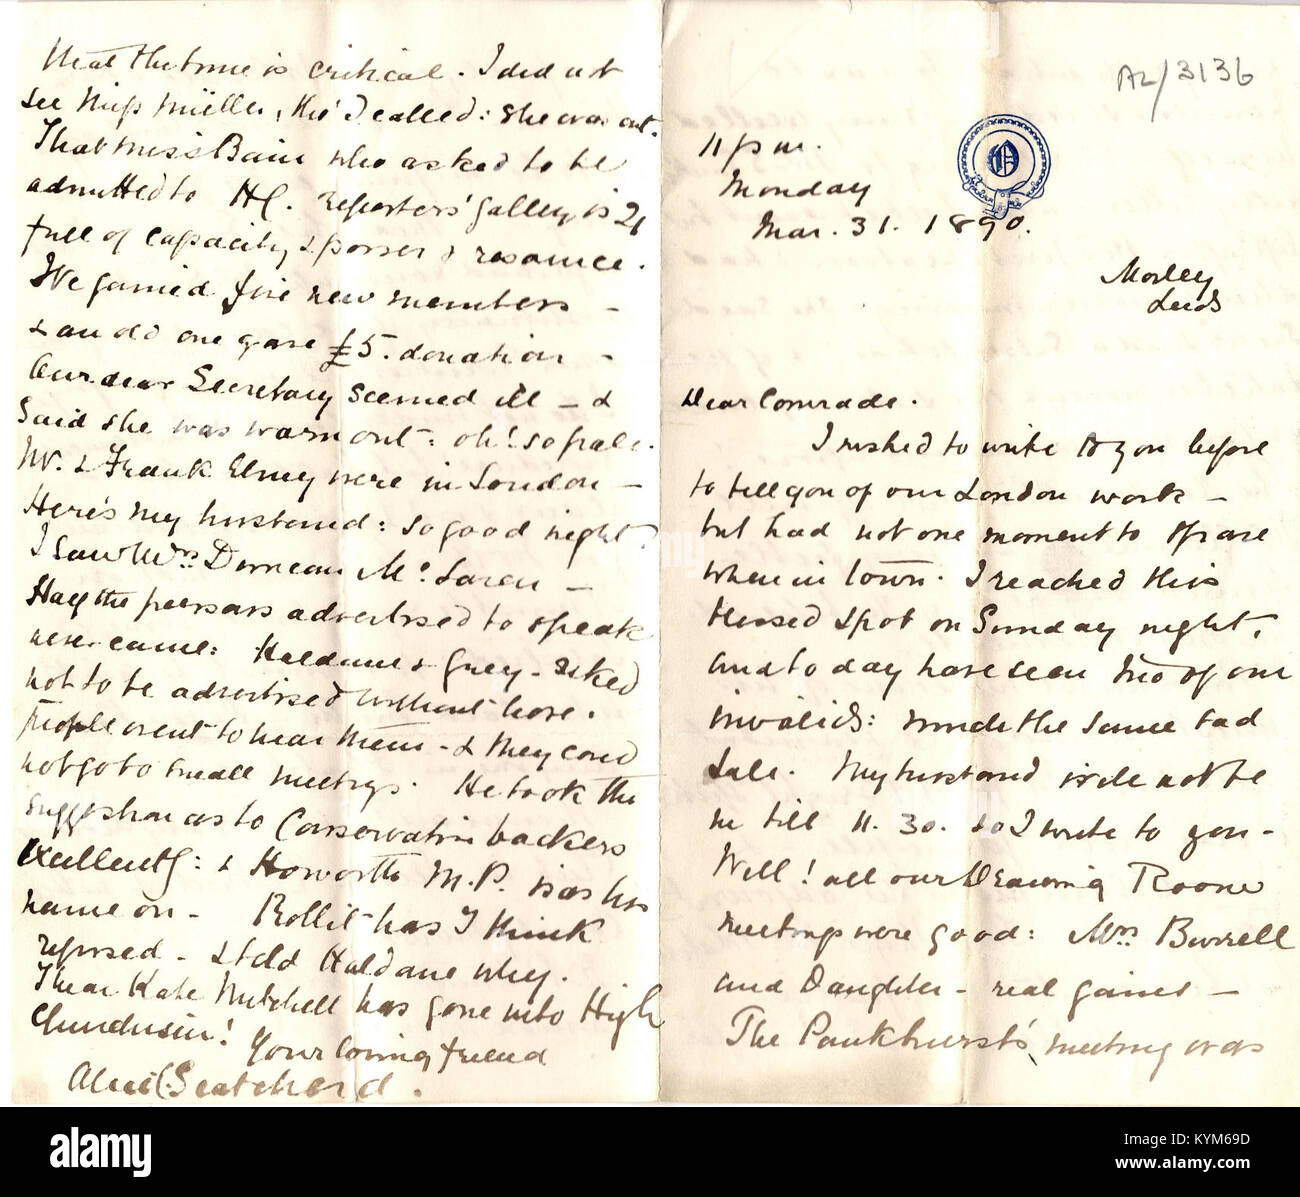 AL/3136
11 p.m.
Monday
Mar. 31. 1890.
Morley
Leeds
Dear Comrade.
I wished to write to you before
to tell you of our London work -
but had not one moment to spare
when in town. I reached this
blessed spot on Sunday night,
and to day have seen two of our
invalids: much the same sad
tale. My husband wile not be
in till 11.30. so I write to you -
Well! all our Drawing Room
meetings were good: Mrs Burrell
and Daughter - real gains -
The Pankhurst's meeting was
that the time is critical. I did not
see Miss Müller, tho' I called: she was out.
That Miss Bain who asked to be
admitted to H.C. reporters' gallery is 21
full of capacity & power & resource.
We gained five new members -
& an old one gave £5. donation -
Our dear Secretary seemed ill - &
said she was worn out: oh! so pale.
Mr. & Frank Elmy were in London -
Here's my husband: so good night.
I saw Mrs Duncan McLaren -
Half the persons advertised to speak
never came: Haldane & Grey - asked
not to be advertised without hope.
People went to hear them - & they could
not go to small meetings. He took the
suggestion as to Conservative backers
excellently: & Howorth M.P. has his
name on - Rollit has I think
refused - & told Haldane why.
I hear Kate Mitchell has gone into High
Churchism!
Your loving friend
Alice C. Scatcherd.
alamy
KYM69D
www.alamy.com